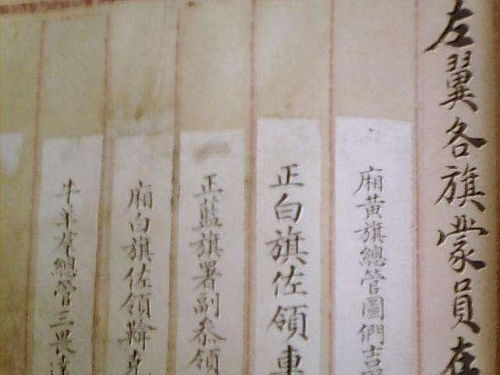 左翼各旗蒙員在
廂黃旗總管圖們吉
正白旗佐領車
正藍旗署副叅領
廂白旗佐領
牛羊羣總管三畏